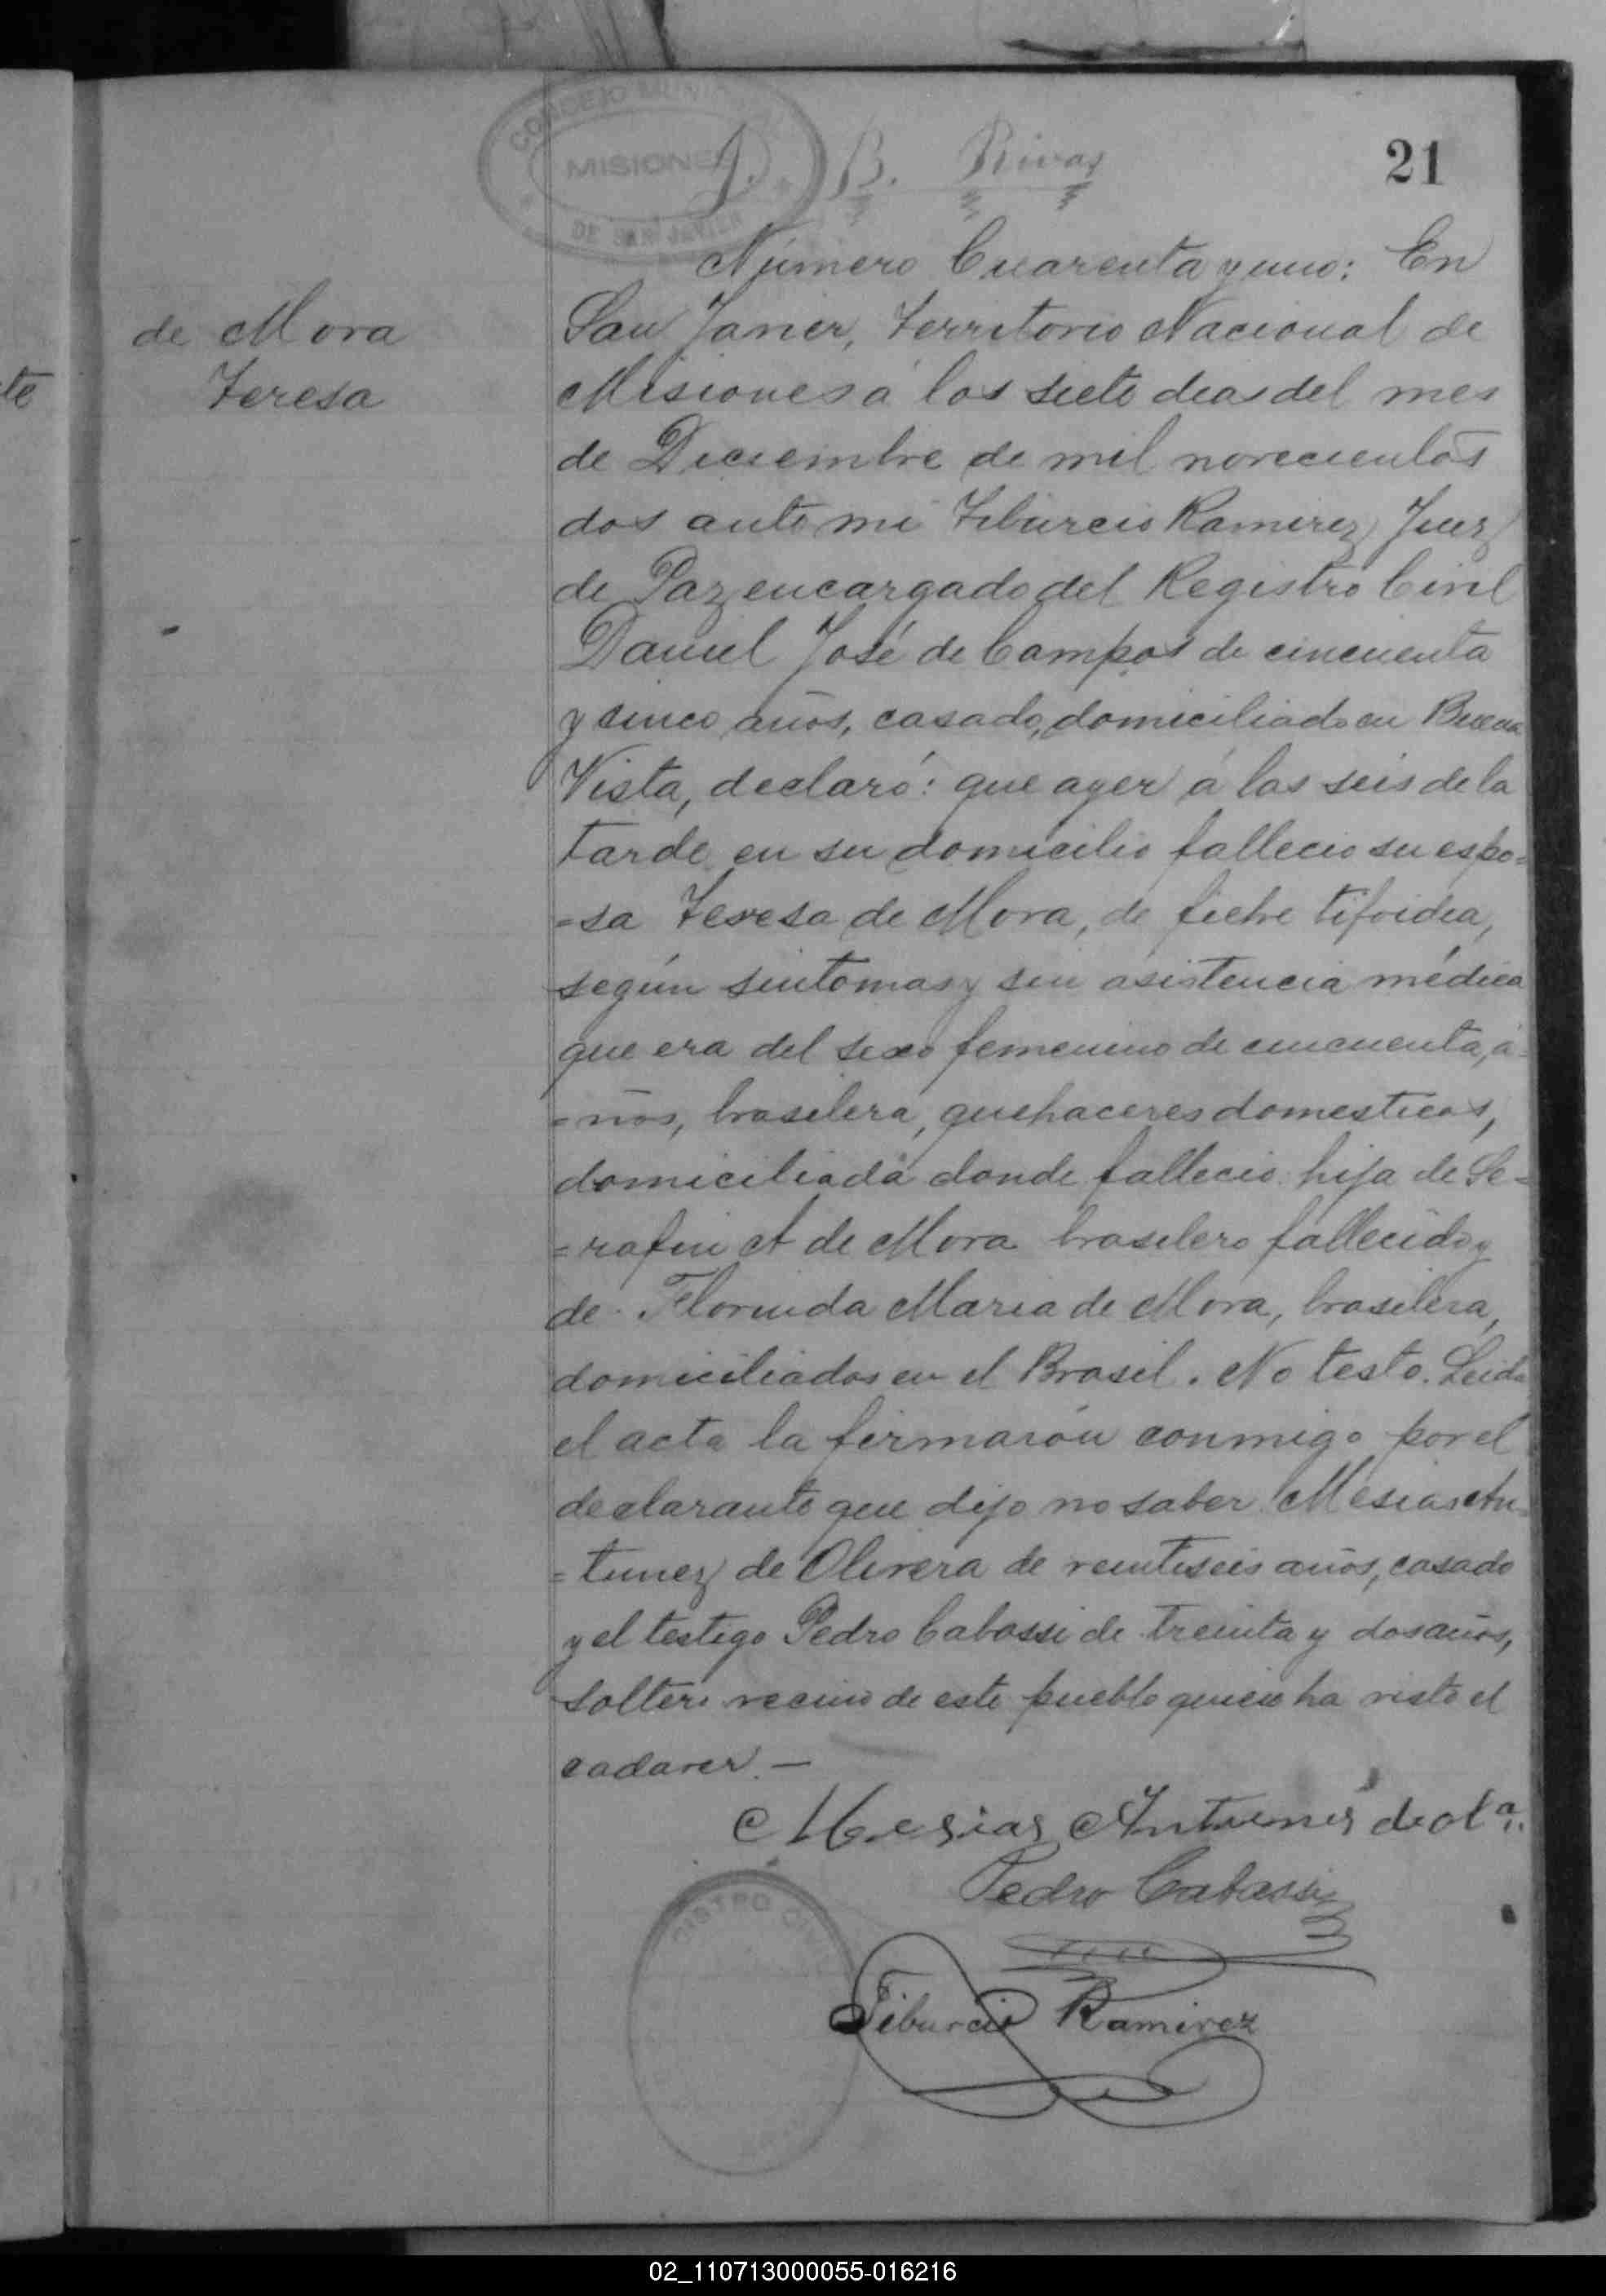 CONCEJO MUNICIPAL
MISIONES
DE SAN JAVIER
J. B. Rivas
21
de Mora
Teresa
te
Número Cuarenta y uno: En
San Javier, Territorio Nacional de
Misiones á los siete dias del mes
de Diciembre de mil novecientos
dos ante mi Tiburcio Ramirez, Juez
de Paz encargado del Registro Civil
Daniel José de Campos de cincuenta
y cinco años, casado, domiciliado en Buena
Vista, declaró: que ayer á las seis de la
tarde en su domicilio fallecio su espo=
=sa Teresa de Mora, de fiebre tifoidea,
según sintomas y sin asistencia médica
que era del sexo femenino de cincuenta, a=
=ños, brasilera, quehaceres domesticos,
domiciliada donde fallecio hija de Se=
=rafin A de Mora brasilero fallecido y
de Florinda Maria de Mora, brasilera,
domiciliados en el Brasil. No testo. Leida
el acta la firmarón conmigo por el
declarante que dijo no saber Mesias An=
=tunez de Olivera de veintiseis años, casado
y el testigo Pedro Cabassi de treinta y dos años,
soltero vecino de este pueblo quien ha visto el
cadaver.—
Mesias Antunes de Olª.
Pedro Cabassi
Tiburcio Ramirez
02_110713000055-016216